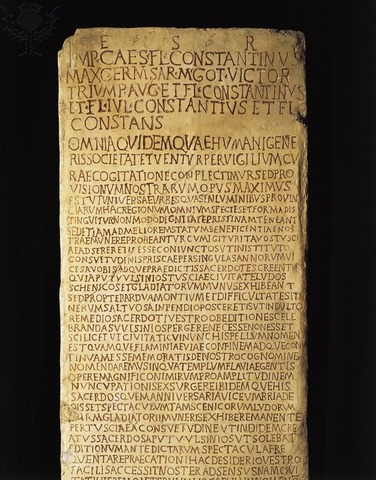 E S R
IMP·CAES·FL·CONSTANTINV
MAX·GERM·SAR·M·GOT·VICTOR
TRIVMP·AVG·ET·FL·CONSTANTINVS
ET·FL·IVL·CONSTANTIVS·ET·FL
CONSTANS
OMNIA QVIDEM QVAE HVMANI GENE
RIS SOCIETATE TVENTVR PERVIGILIVM CV
RAE COGITATIONE CONPLECTIMVR SED PRO
VISIONVM NOSTRARVM OPVS MAXIMVS
EST VT VNIVERSAE VRBES QVAS IN LVMINIBVS PROVIN
CIARVM HAC REGIONVM OMNIVM SPECIES ET FORMA DIS
TINGVITVR NON MODO DIGNITATE PRISTINAM TENEAN
SED ETIAM AD MELIOREM STATVM BENEFICENTIAE NOS
TRAE MVNERE PROBEANTVR CVM IGITVR ITA VOS TVSCI
AE ADSERERETIS ESSE CONIVNCTOS VT INSTITVTO
CONSVETVDINIS PRISCAE PER SINGVLAS ANNORVM VI
CES A VOBIS ADQVE PRAEDICTIS SACERDOTES CREENTVR
QVI APVT VVLSINIOS TVSCIAE CIVITATE LVDOS
SCHENICOS ET GLADIATORVM MVNVS EXHIBEANT
SED PROPTER ARDVA MONTIVM ET DIFFICVLTATES ITI
NERVM SALTVOSA INPENDIO POSCERETIS VT INDVLTO
REMEDIO SACERDOTI VESTRO OB EDITIONES CELE
BRANDAS VVLSINIOS PERGERE NECESSE NON ESSET
SCILICET VT CIVITATI CVI NVNC HISPELLVM NOMEN
EST QVAMQVE FLAMINIAE VIAE CONFINEM ADQVE CON
TINVAM ESSE MEMORATIS DE NOSTRO COGNOMINE
NOMEN DAREMVS IN QVA TEMPLVM FLAVIAE GENTIS
OPERE MAGNIFICO NIMIRVM PRO AMPLITVDINEM
NVNCVPATIONIS EXSVRGERE IBIDEMQVE HIS
SACERDOS QVEM ANNIVERSARIA VICE VMBRIA DE
DISSET SPECTACVLVM TAM SCENICORVM LVDORVM
QVAM GLADIATORII MVNERIS EXHIBERE MANENTE
PER TVSCIA EA CONSVETVDINE VT INDIDEM CRE
ATVS SACERDOS APVT VVLSINIOS VT SOLEBAT
EDITIONVM ANTE DICTARVM SPECTACVLA FRE
QVENTARE PRAECATIONI HAC DESIDERIO VESTRO
FACILIS ACCESSIT NOSTER ADSENSVS NAM CIVI